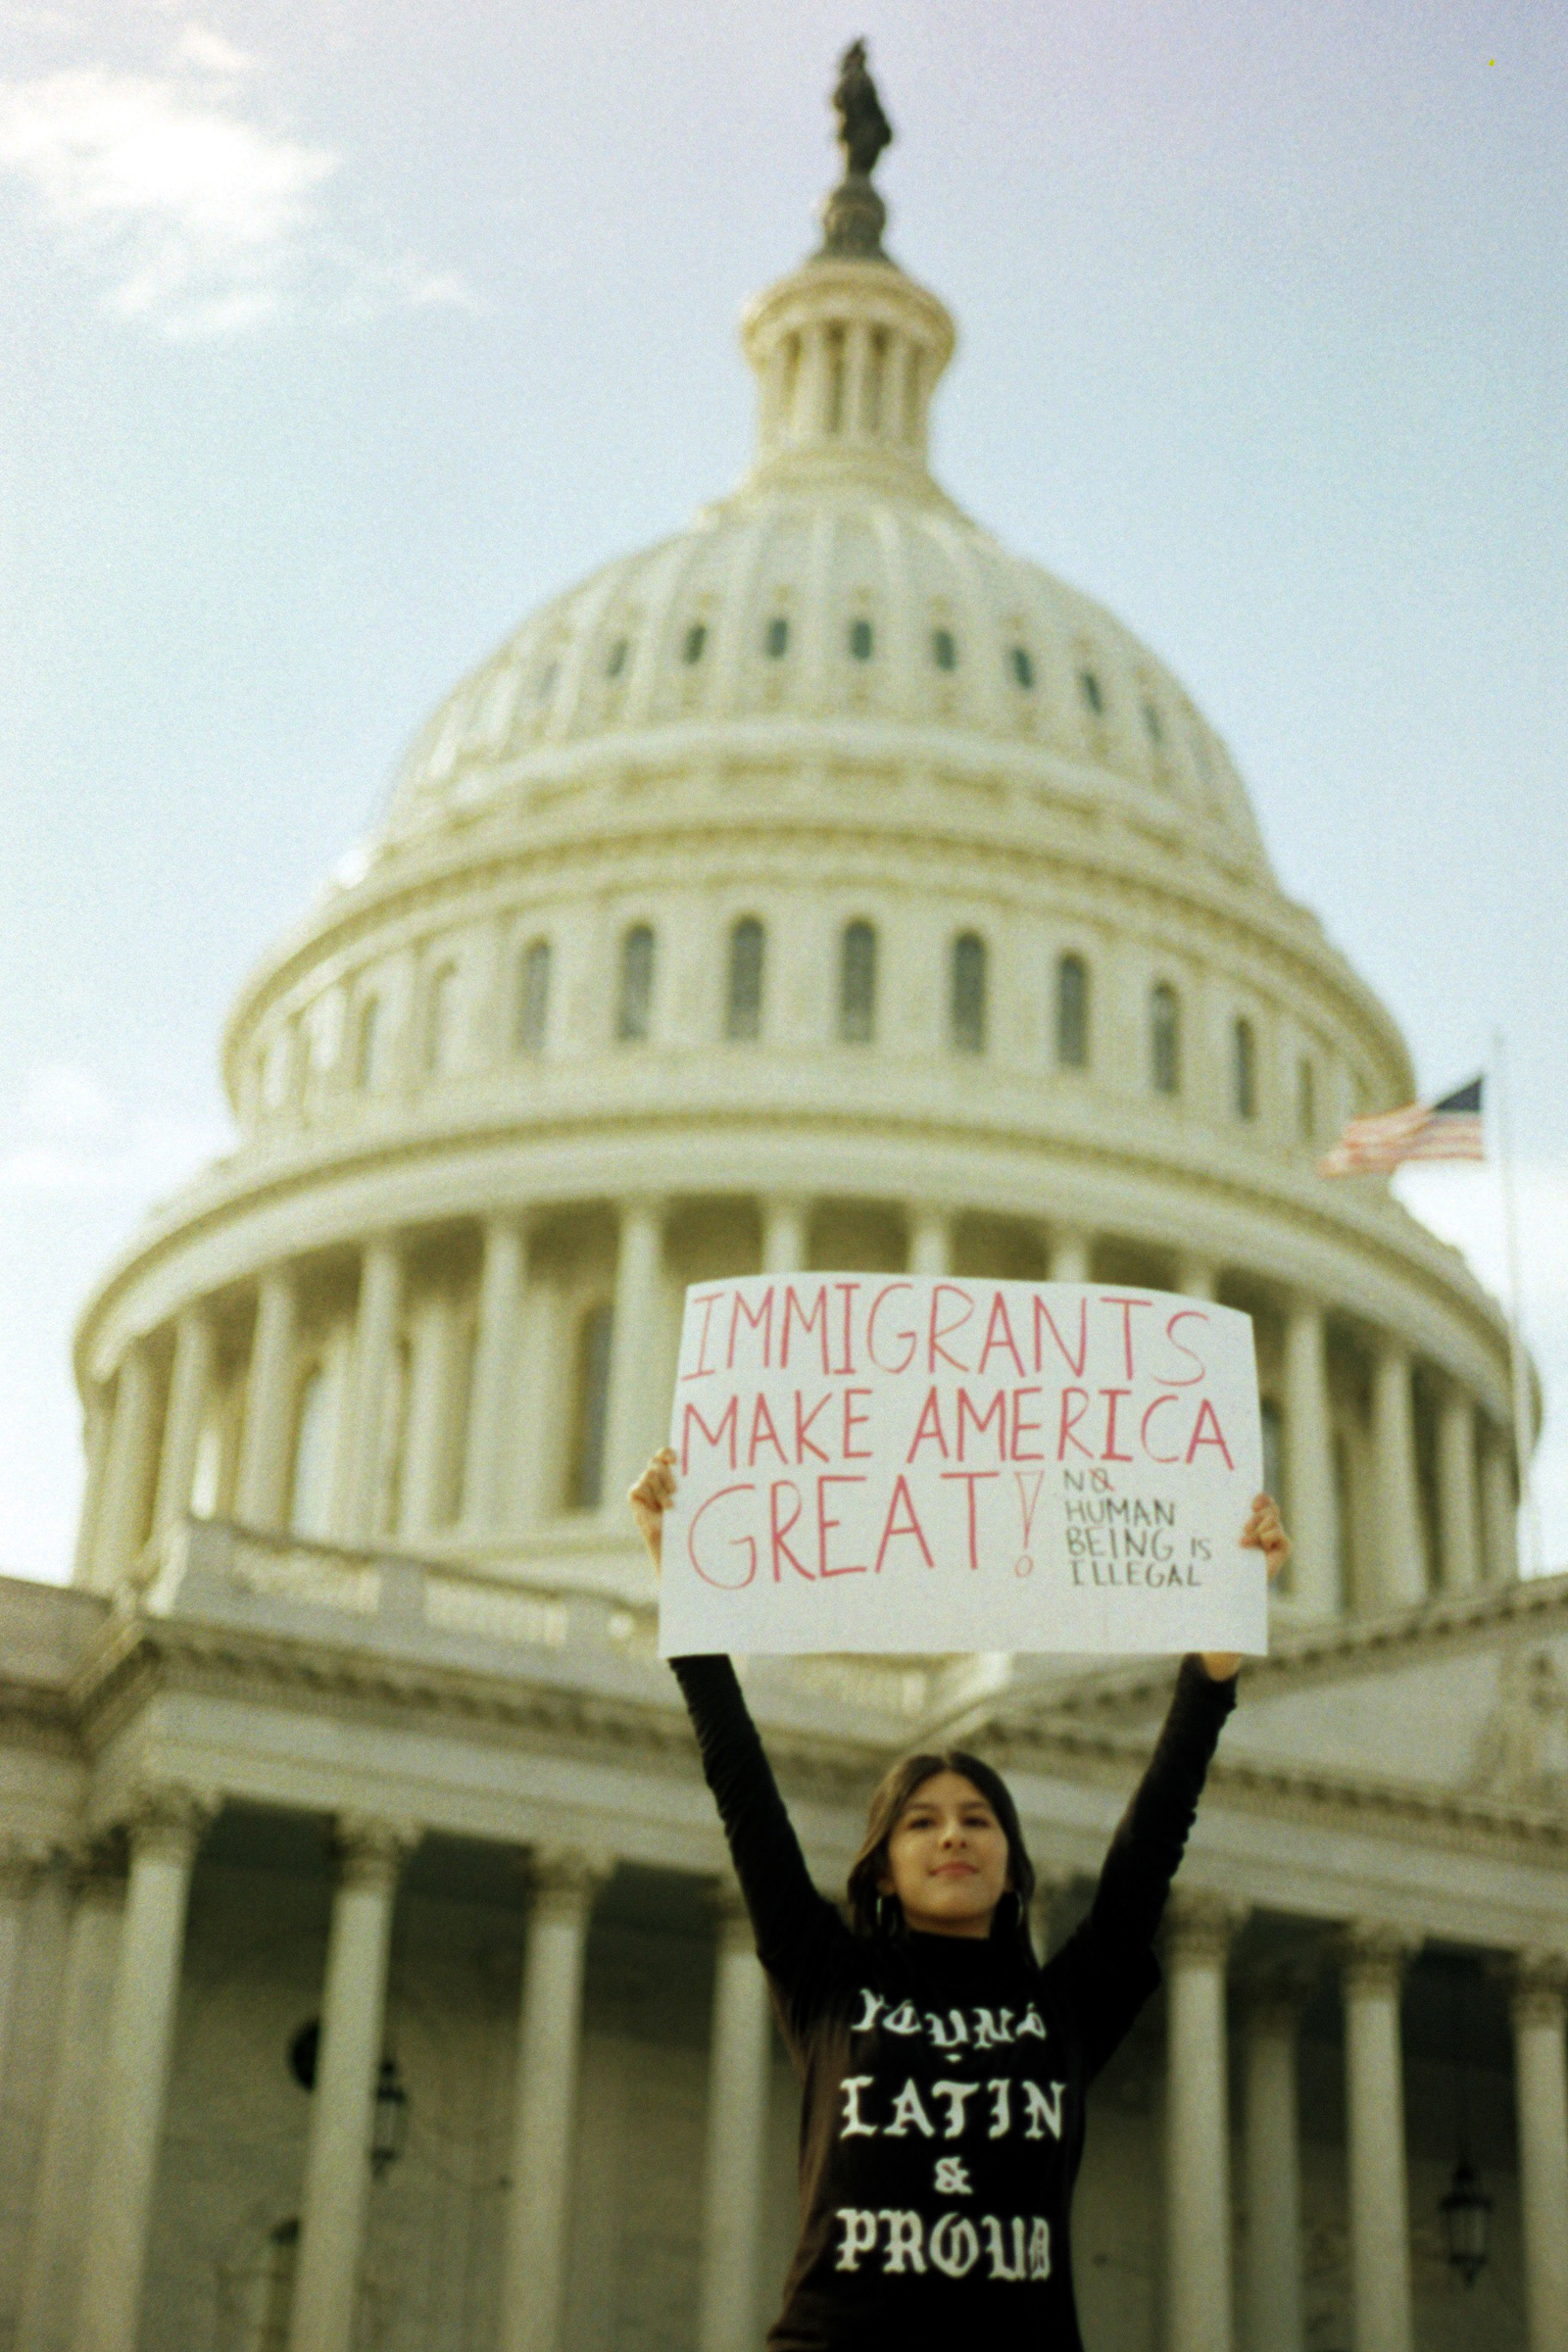 IMMIGRANTS
MAKE AMERICA
GREAT!
NO
HUMAN
BEING IS
ILLEGAL
YOUNG
LATIN
&
PROUD